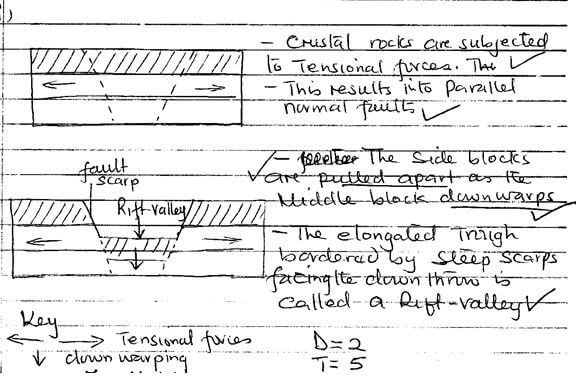 )
- Crustal rocks are subjected
to Tensional forces. The
- This results into Parallel
normal faults
- The Side blocks
are pulled apart as the
Middle block downwarps
fault
scarp
Rift-valley
- The elongated Trough
bordered by steep scarps
facing the down throw is
called a Rift-valley
Key
Tensional forces
down warping
D=2
T=5